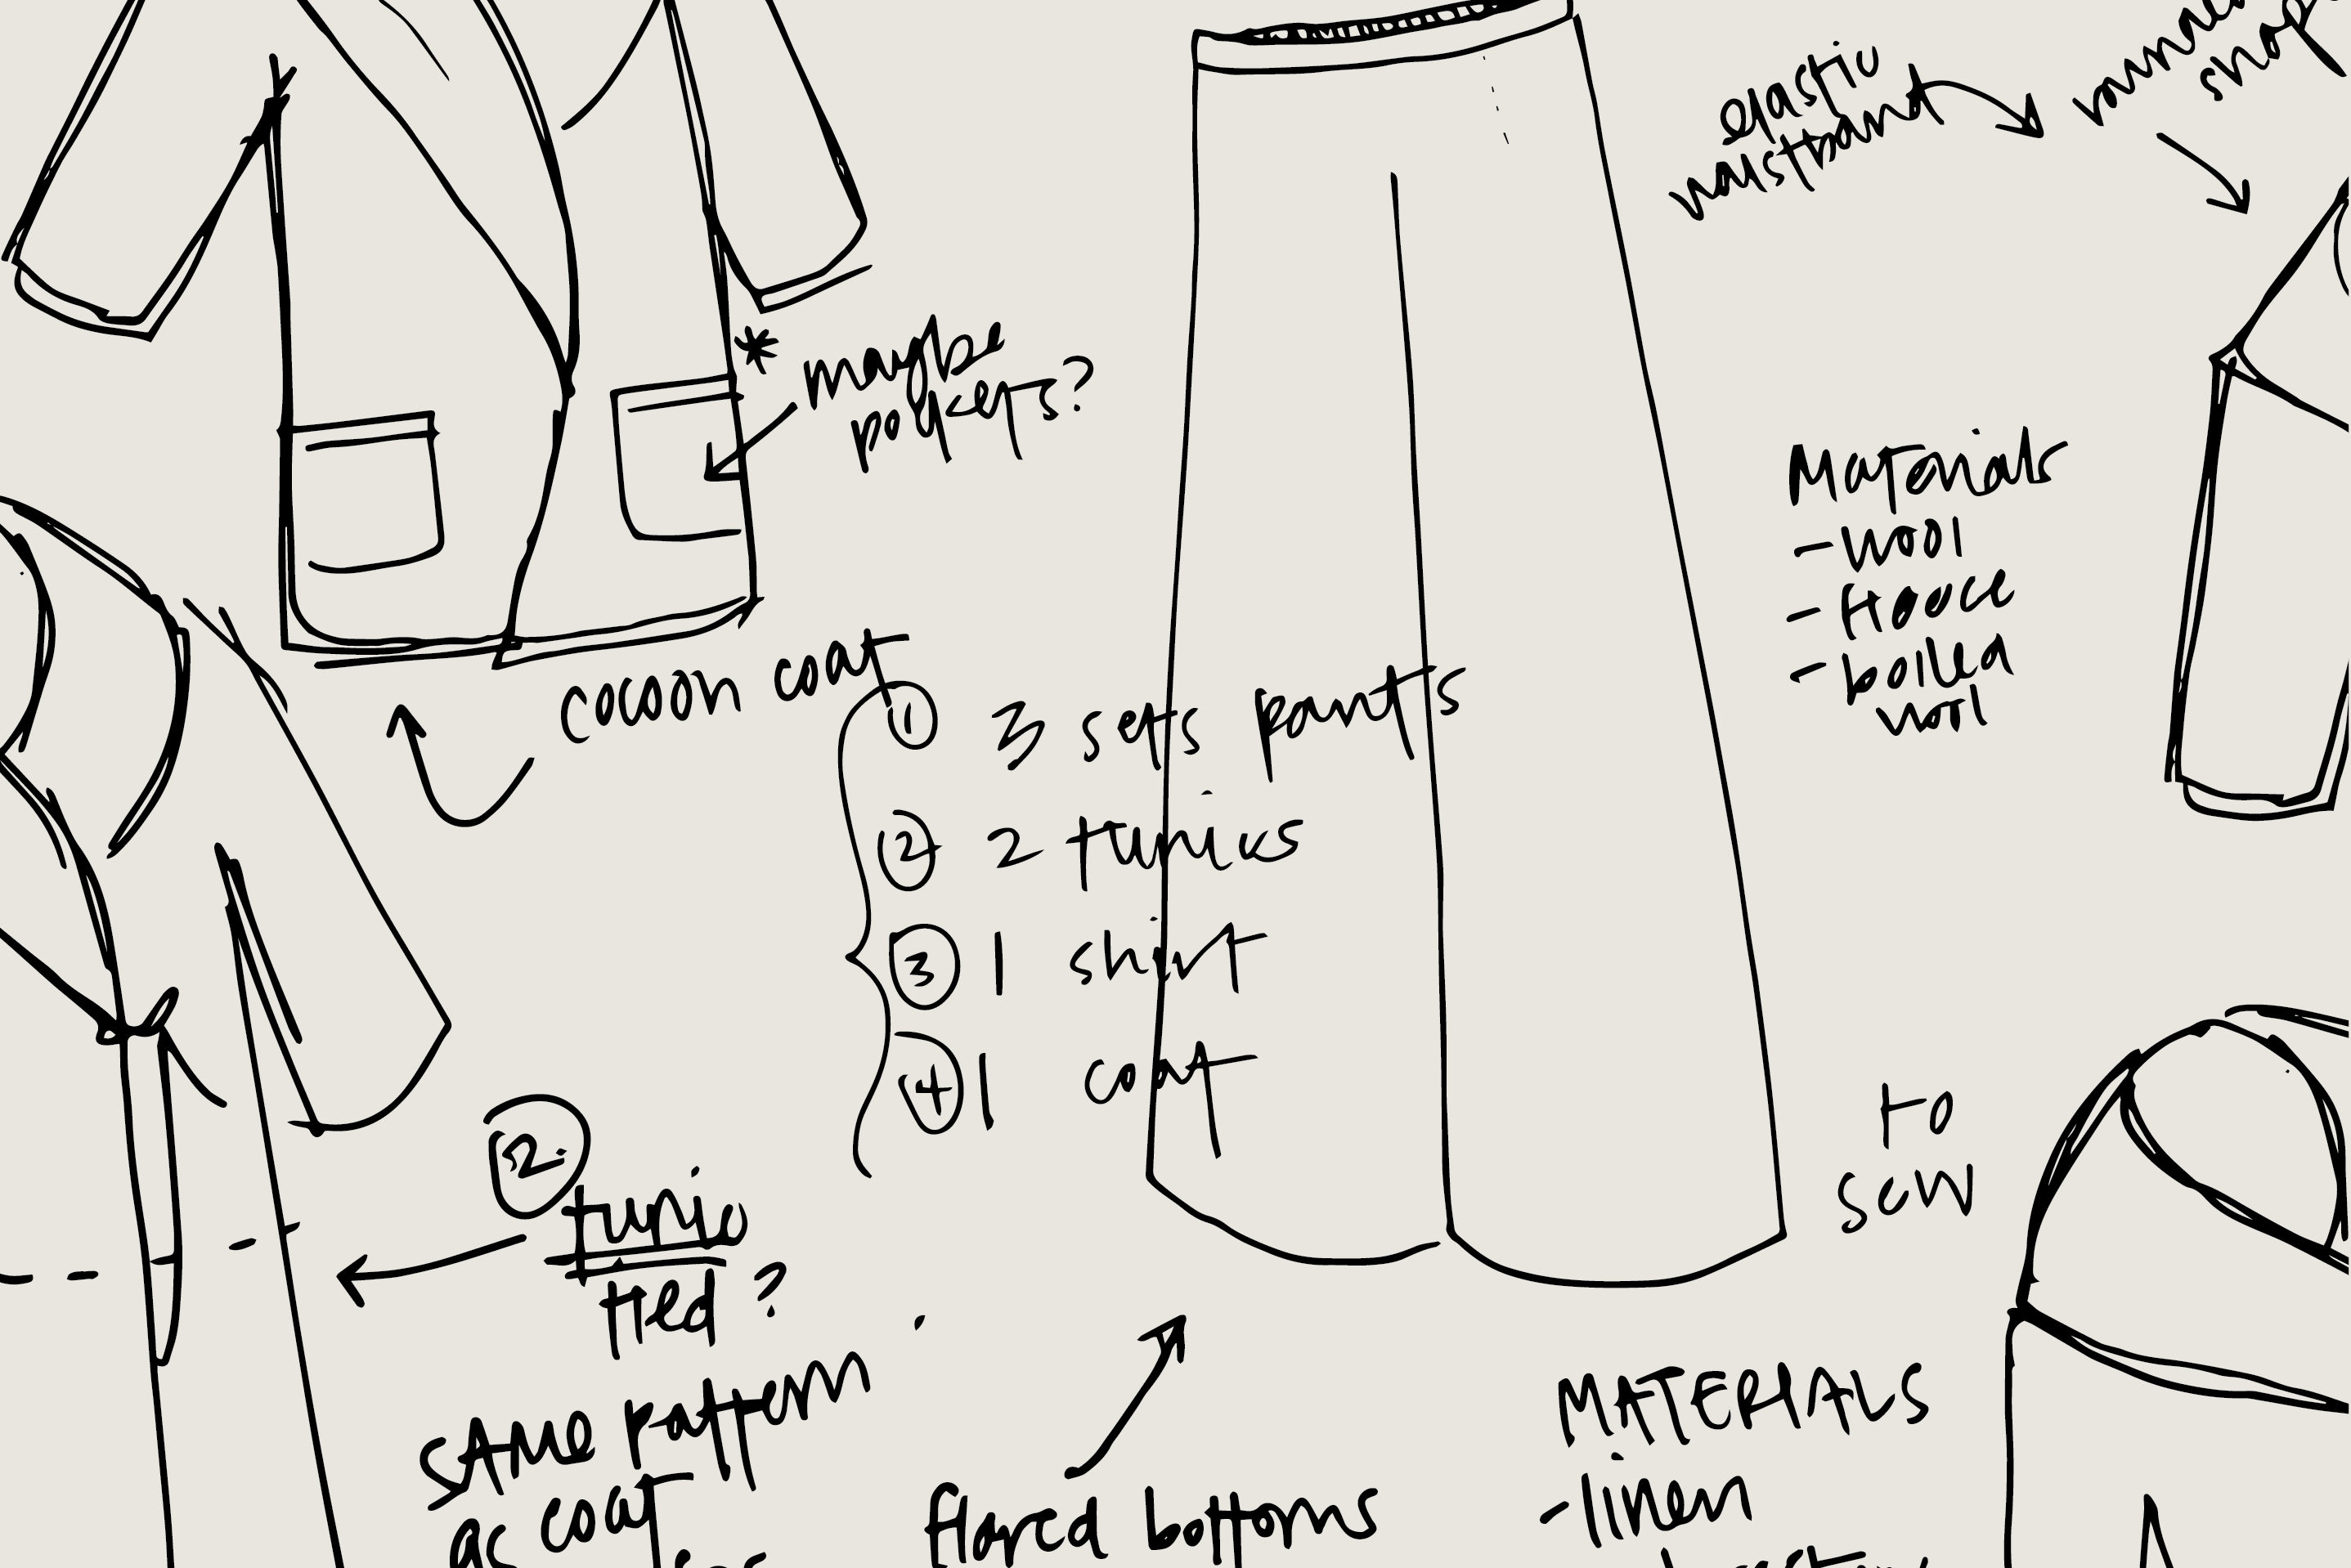 elastic
waistband
* maybe
pockets?
Materials
- wool
- fleece
- boiled
wool
cocoon coat
① 3 sets pants
② 2 tunics
③ 1 shirt
④ 1 coat
to
sew
②
tunic
tied?
SAME pattern
as coat
flared bottoms
MATERIALS
- linen